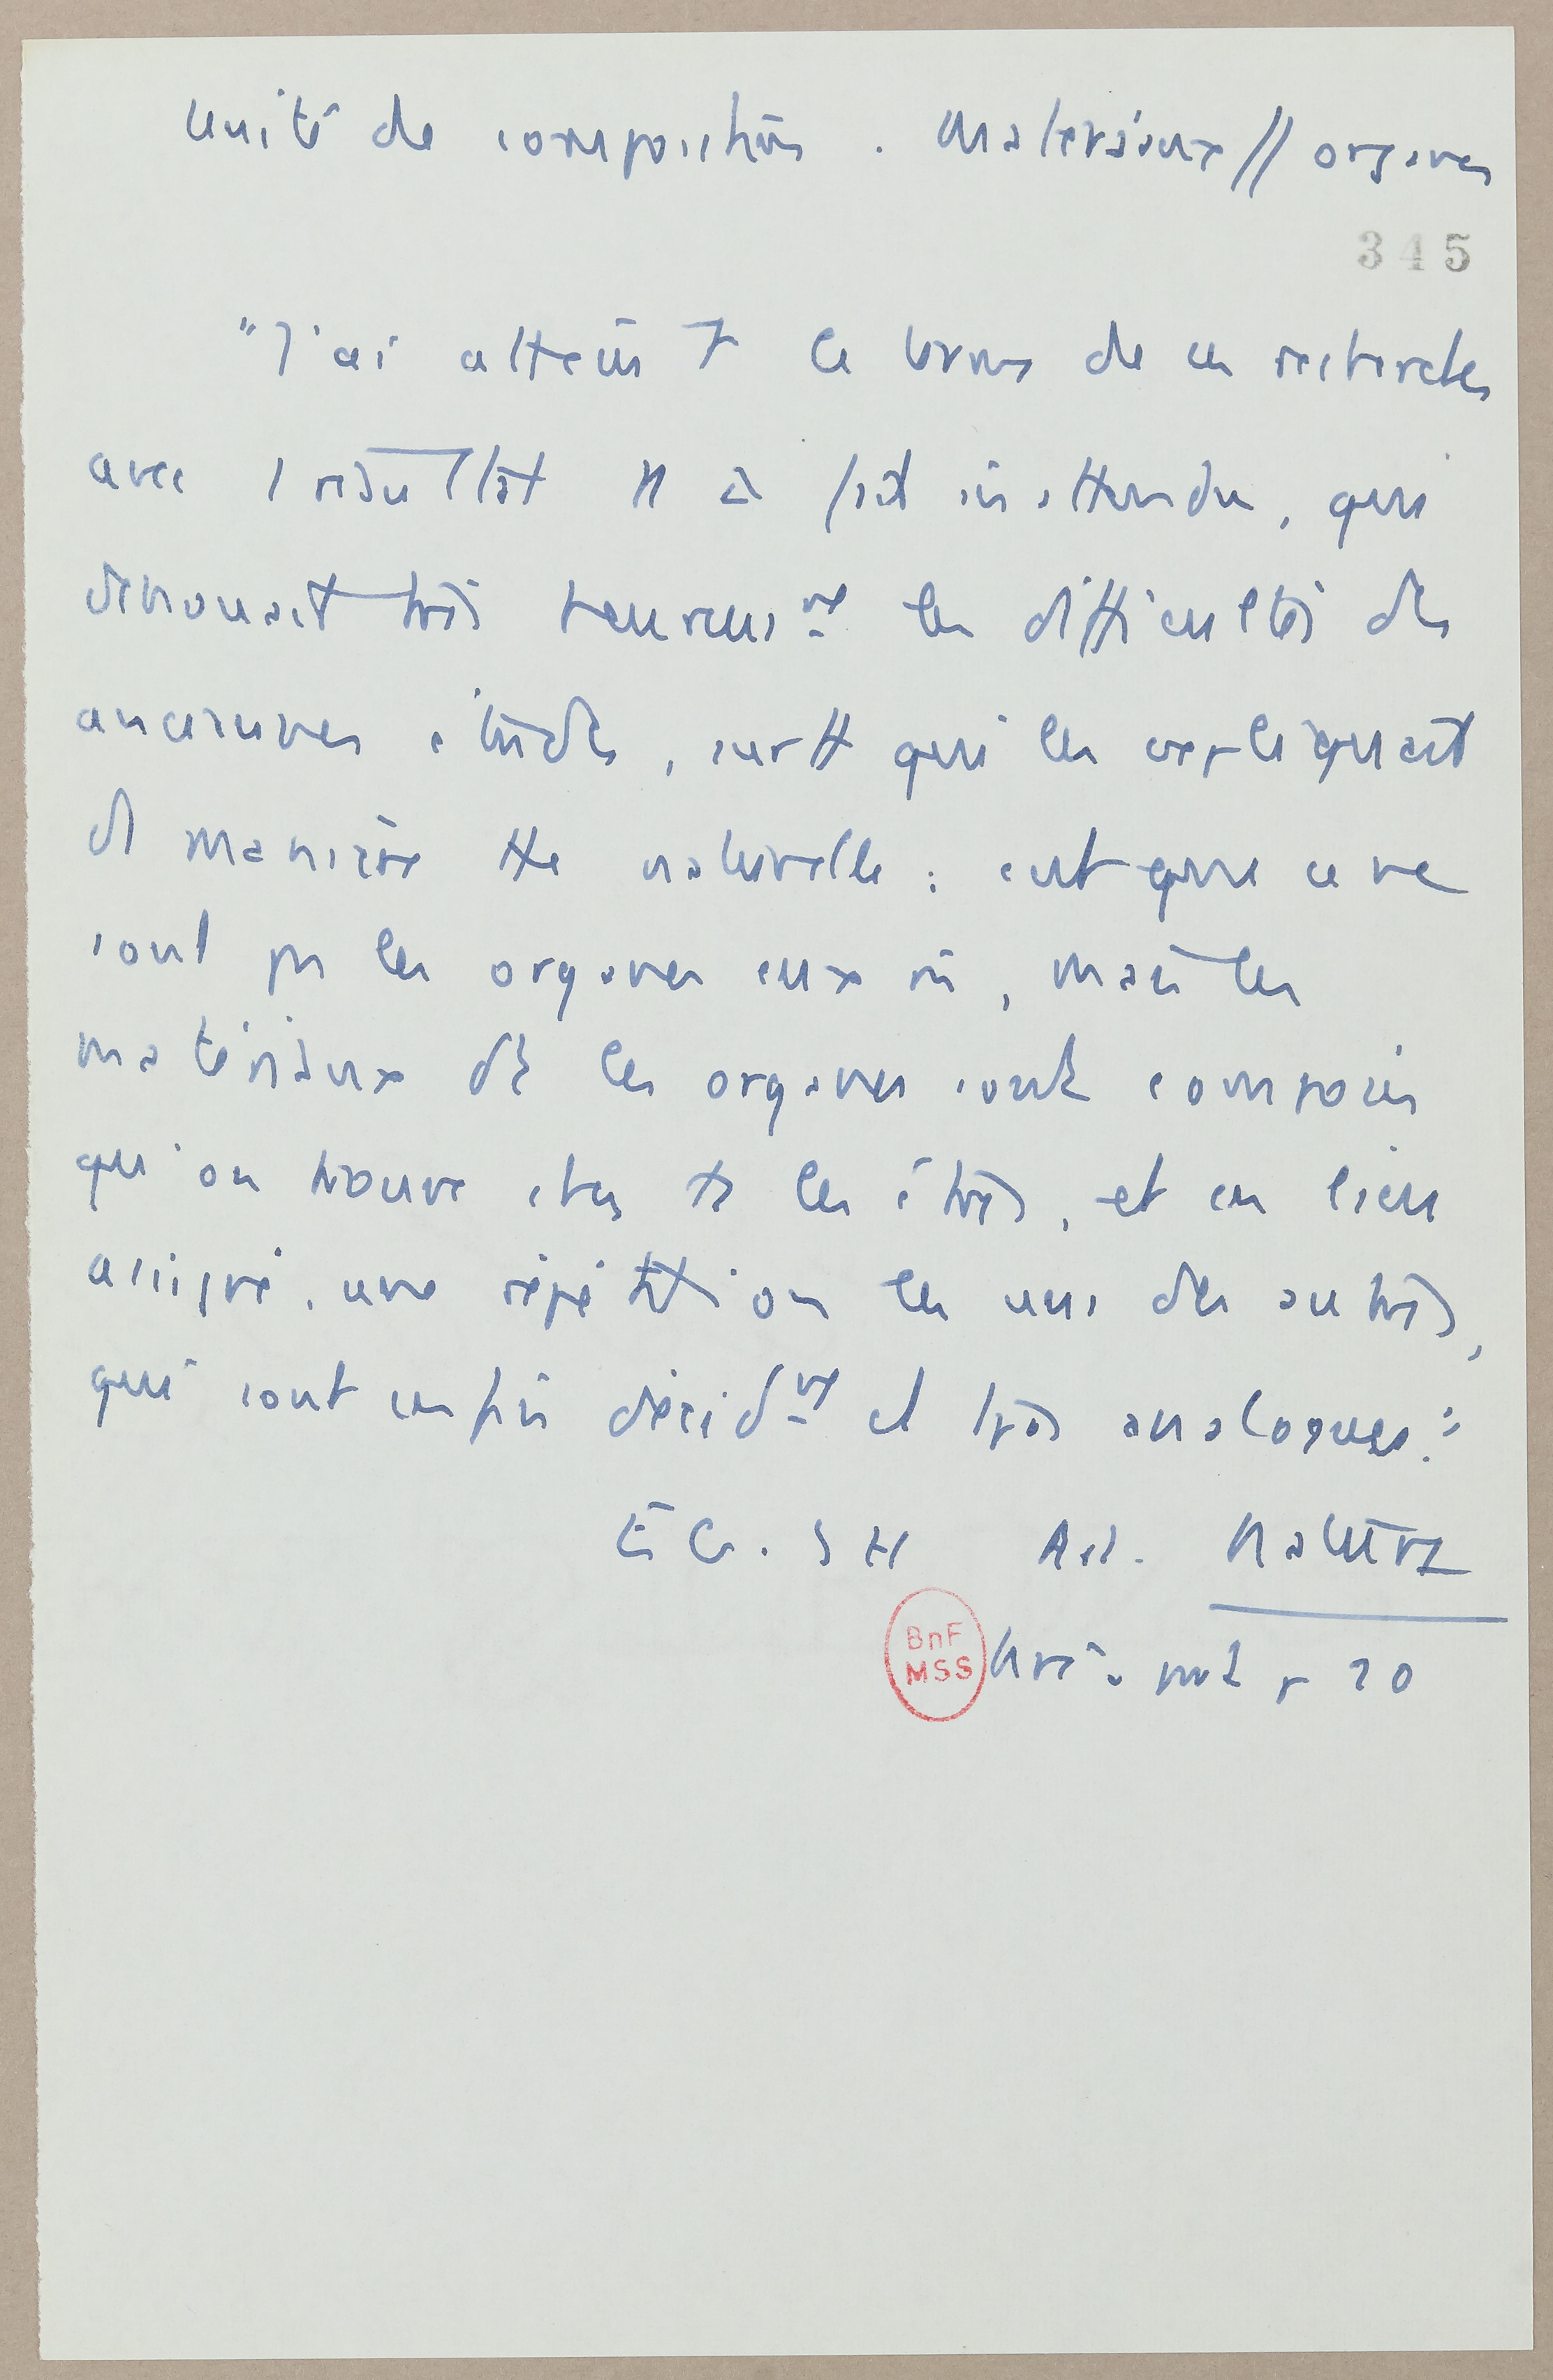 Unité de composition. Materiaux // organes
345
"J'ai atteint le terme de ces recherches
avec 1 résultat tt à fait inattendu, qui
dénouait très heureusmt les difficultés des
anciennes études, surtt qui les expliquait
de manière tte naturelle : c'est que ce ne
sont pas les organes eux mm, mais les
matériaux dt les organes sont composés
qu'on trouve chez ts les êtres, et en lieu
assigné, une répétition les uns des autres,
qui sont enfin décidmt et très analogues."
E. G. S H Art. Nature
BnF
MSS
p 20